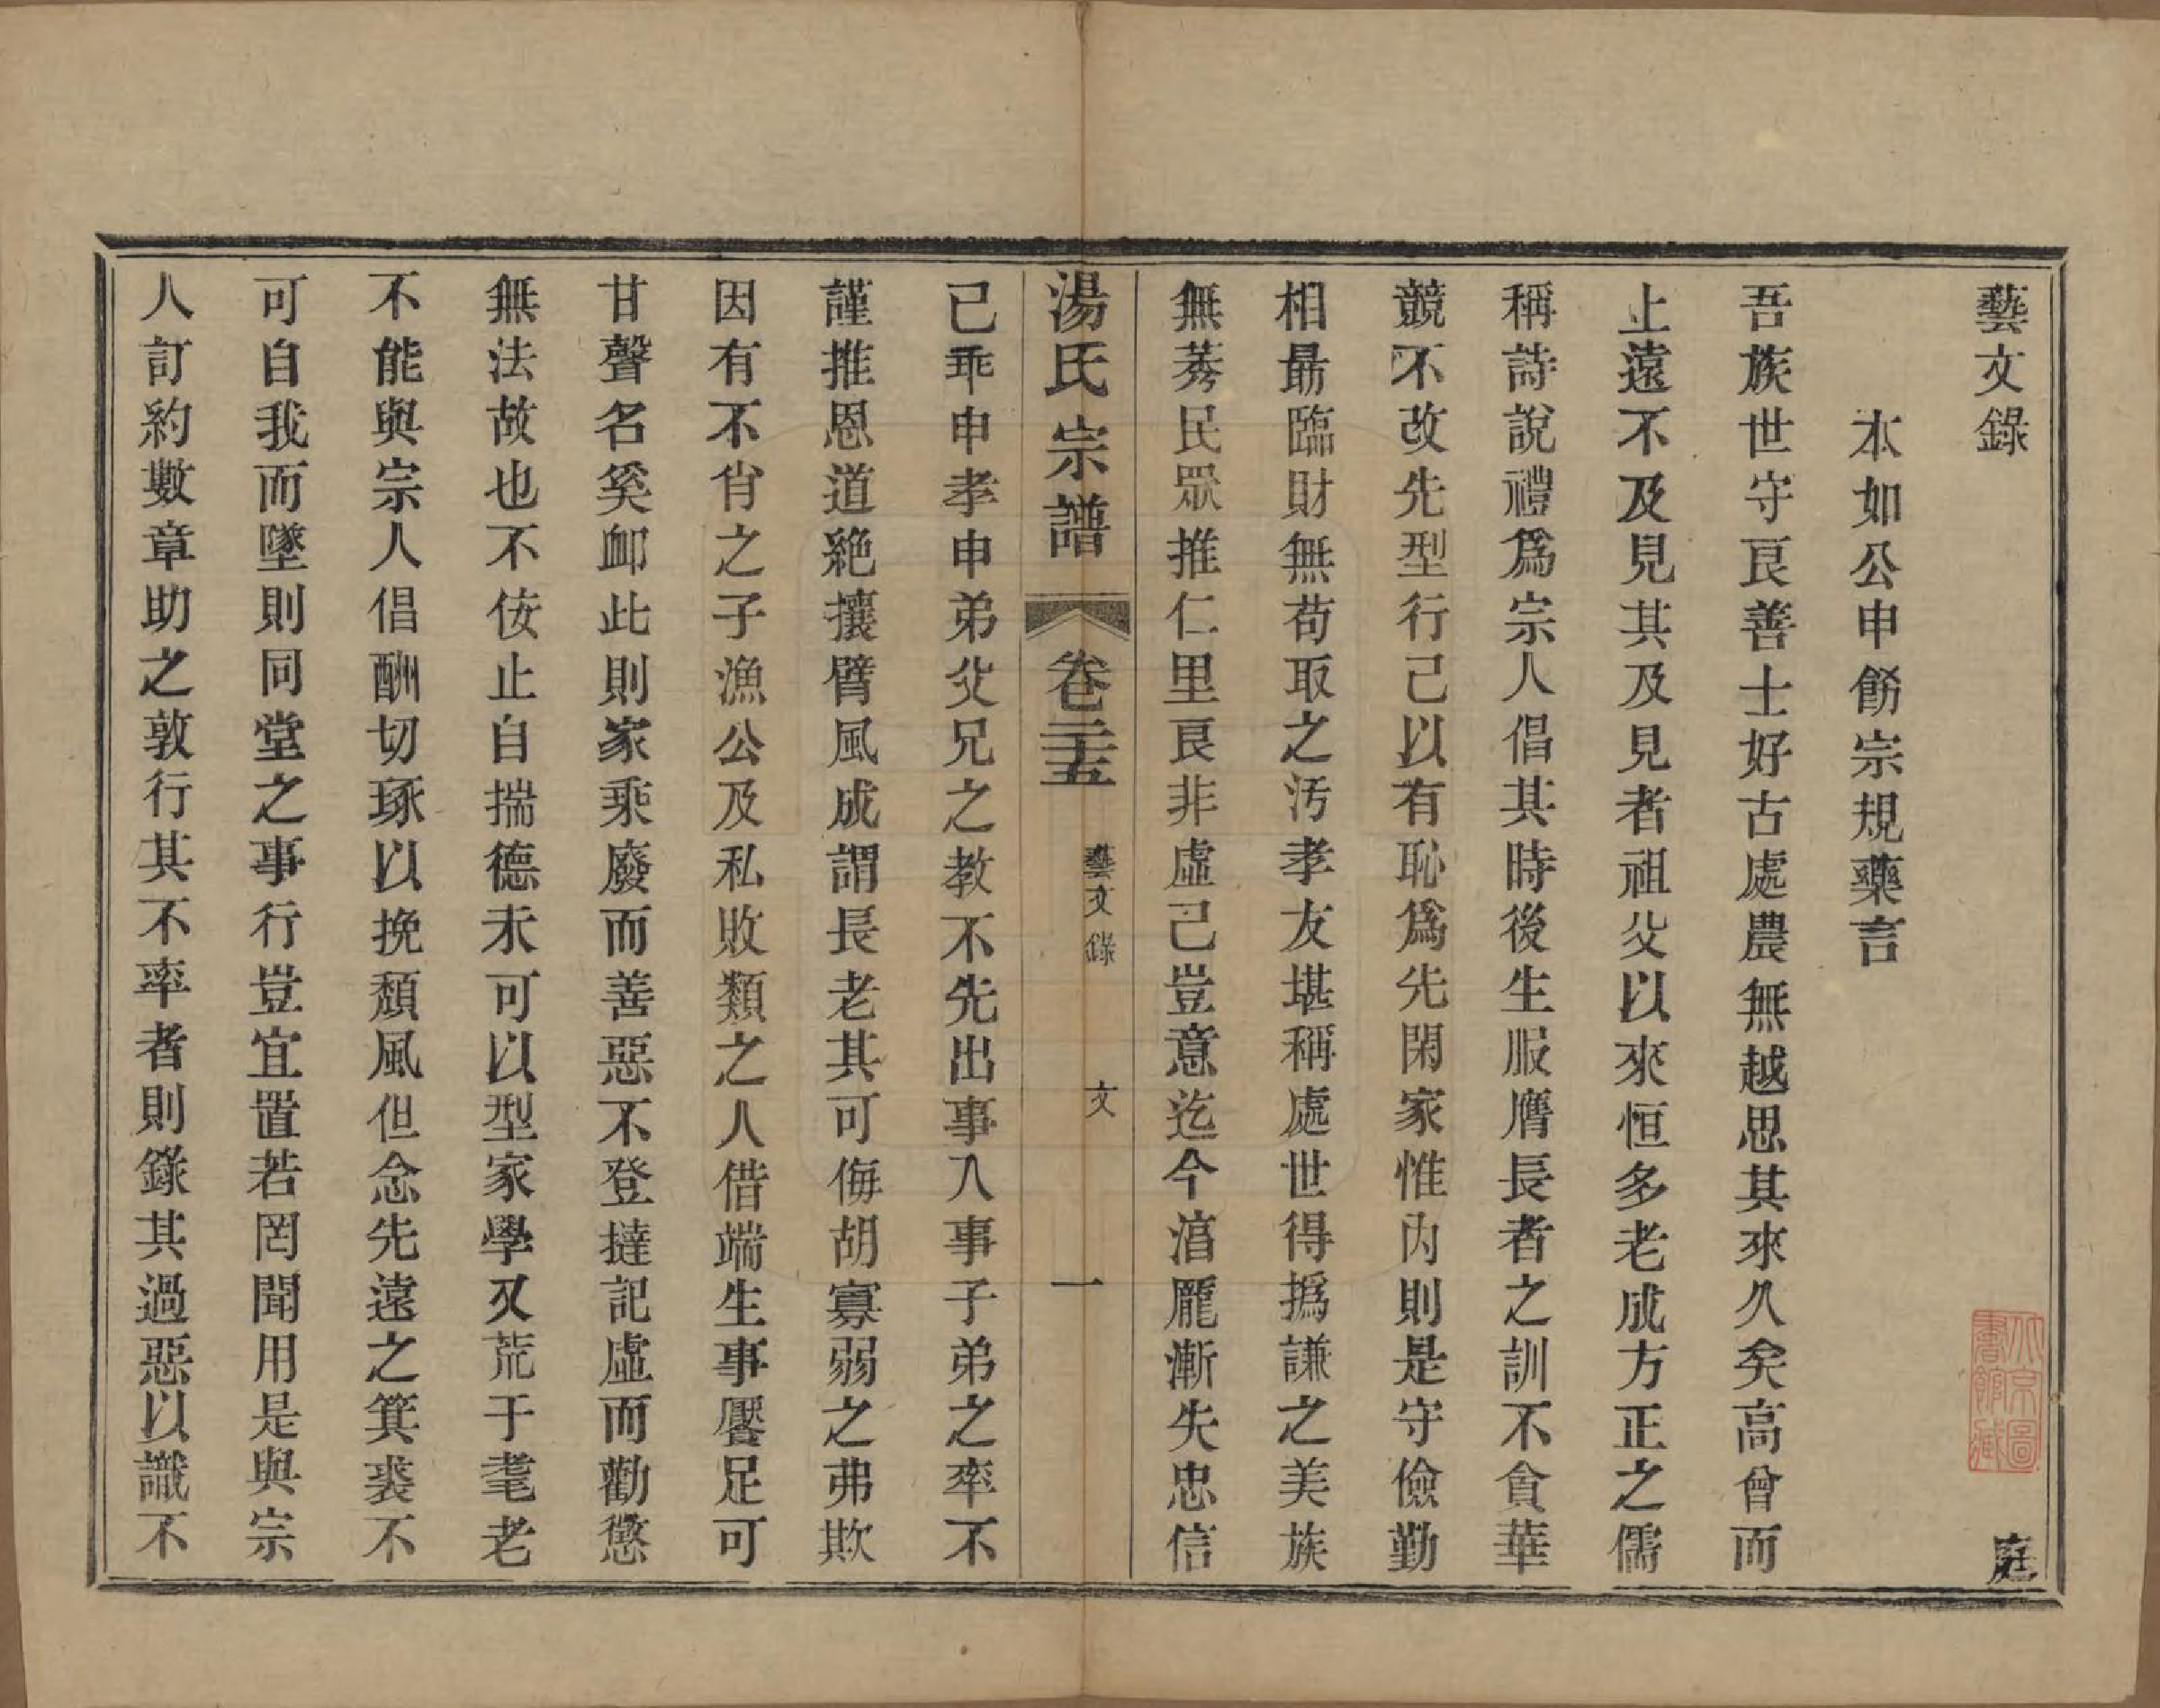 藝文錄
庭
本如公申飭宗規藥言
吾族世守良善士好古處農無越思其來久矣高曾而
上遠不及見其及見者祖父以來恒多老成方正之儒
稱詩說禮爲宗人倡其時後生服膺長者之訓不貪華
競不改先型行己以有恥爲先閑家惟內則是守儉勤
相勗臨財無苟取之汚孝友堪稱處世得撝謙之美族
無莠民眾推仁里良非虛己豈意迄今淯龎漸失忠信
湯氏宗譜
卷二十五
藝文錄
文
一
已乖申孝申弟父兄之教不先出事入事子弟之率不
謹推恩道絶攘臂風成謂長老其可侮胡寡弱之弗欺
因有不肖之子漁公及私敗類之人借端生事饜足可
甘聲名奚卹此則家乘廢而善惡不登撻記虛而勸懲
無法故也不佞止自揣德未可以型家學又荒于耄老
不能與宗人倡酬切琢以挽頹風但念先遠之箕裘不
可自我而墜則同堂之事行豈宜置若罔聞用是與宗
人訂約數章助之敦行其不率者則錄其過惡以識不
北京圖書館藏